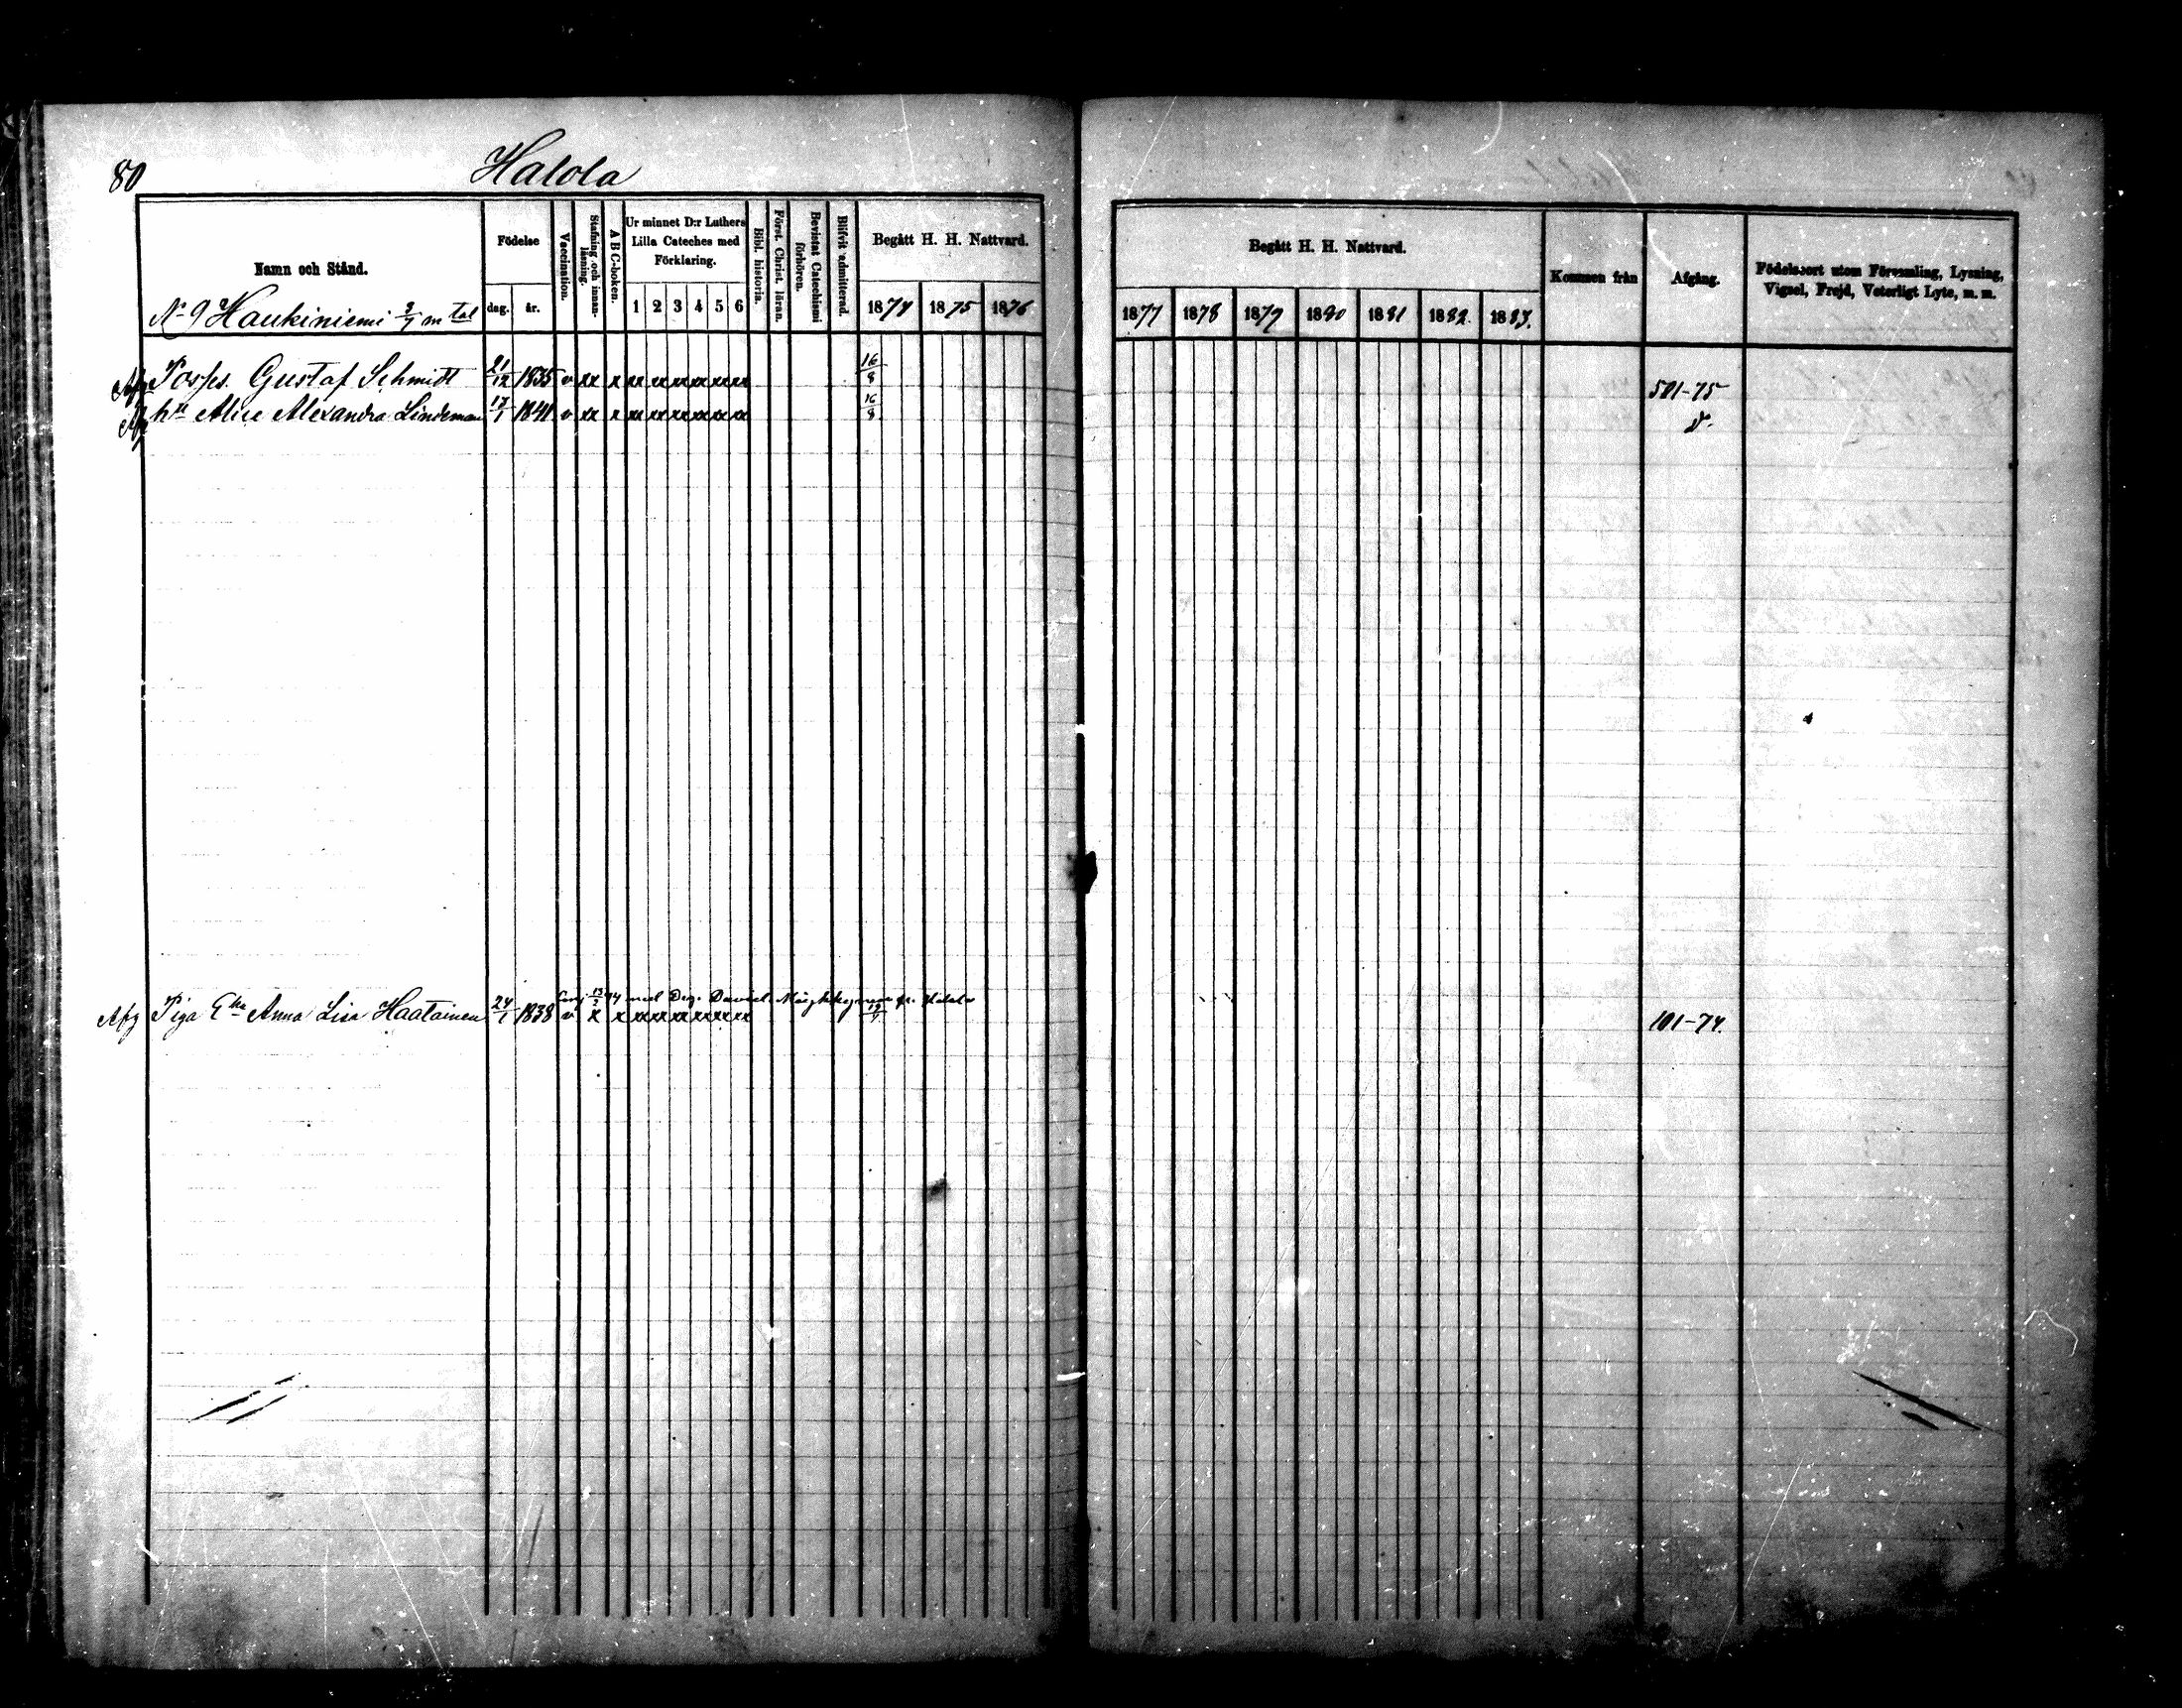 80
Halola
Namn och Stånd.
Födelse
dag. år.
Vaccination.
Stafning och innanläsning.
A B C-boken.
Ur minnet D:r Luthers Lilla Cateches med Förklaring.
1 2 3 4 5 6
Bibl. historia.
Först. Christ. läran.
Bevistat Catechismi förhören.
Blifvit admitterad.
Begått H. H. Nattvard.
1874 1875 1876
Begått H. H. Nattvard.
1877 1878 1879 1880 1881 1882 1883.
Kommen från
Afgång.
Födelseort utom Församling, Lysning, Vigsel, Frejd, Veterligt Lyte, m. m.
No 9 Haukiniemi m tal
Afg Posses. Gustaf Schmidt 21/12 1835 v xx x xx xx xx xx xx xx 16/8 501-75
Afg hu Alice Alexandra Lindeman 17/1 1841 v xx x xx xx xx xx xx x 16/8 d:o
conj 13/2 74 med Drg. David fr. Halola
Afg Piga Eka Anna Lisa Haatainen 24/1 1838 v x x xx xx xx xx xx xx 101-74.